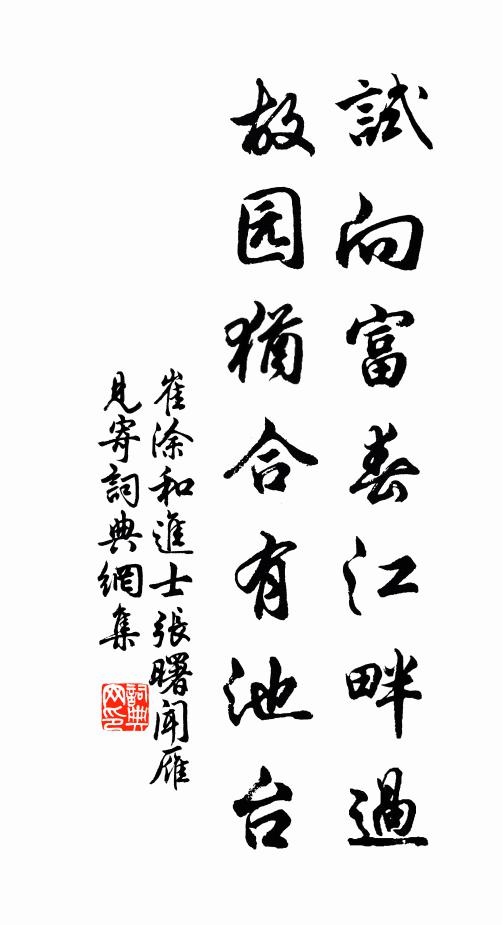 試向富春江畔過
故园猶合有池台
崔涂和進士張曙闻雁
見寄詞典網集
詞典
网印